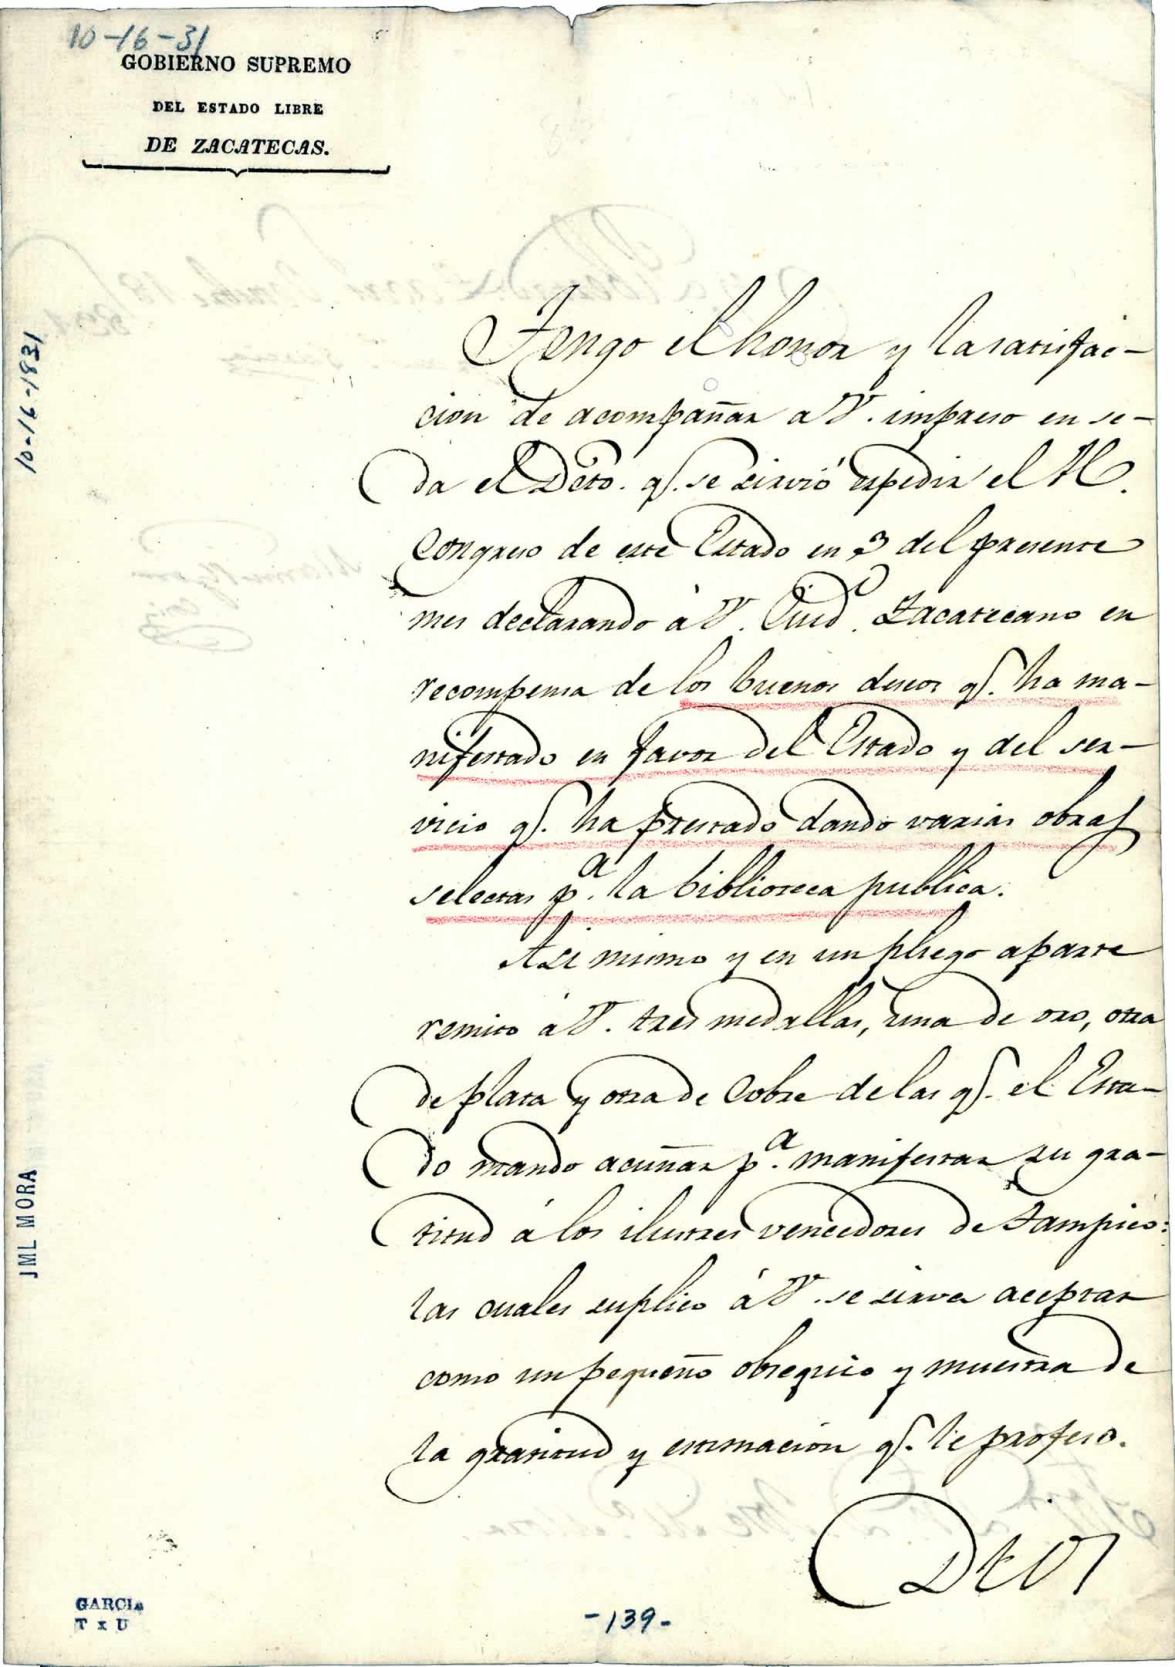 10-16-31
GOBIERNO SUPREMO
DEL ESTADO LIBRE
DE ZACATECAS.
10-16-1831
Tengo el honor y la satisfac-
cion de acompañar a V. impreso en se-
da el Dcto. q.e se sirvió espedir el H.
Congreso de este Estado en 3 del presente
mes declarando á V. Ciud.o Zacatecano en
recompensa de los buenos deseos q.e ha ma-
nifestado en favor del Estado y del ser-
vicio q.e ha prestado dando varias obras
selectas p.a la biblioteca publica.
Asi mismo y en un pliego aparte
remito á V. tres medallas, una de oro, otra
de plata y otra de Cobre de las q.e el Esta-
do mandó acuñar p.a manifestar su gra-
titud á los ilustres vencedores de Tampico:
las cuales suplico á V. se sirva aceptar
como un pequeño obsequio y muestra de
la gratitud y estimacion q.e le profeso.
JML MORA
GARCIA
T x U
-139-